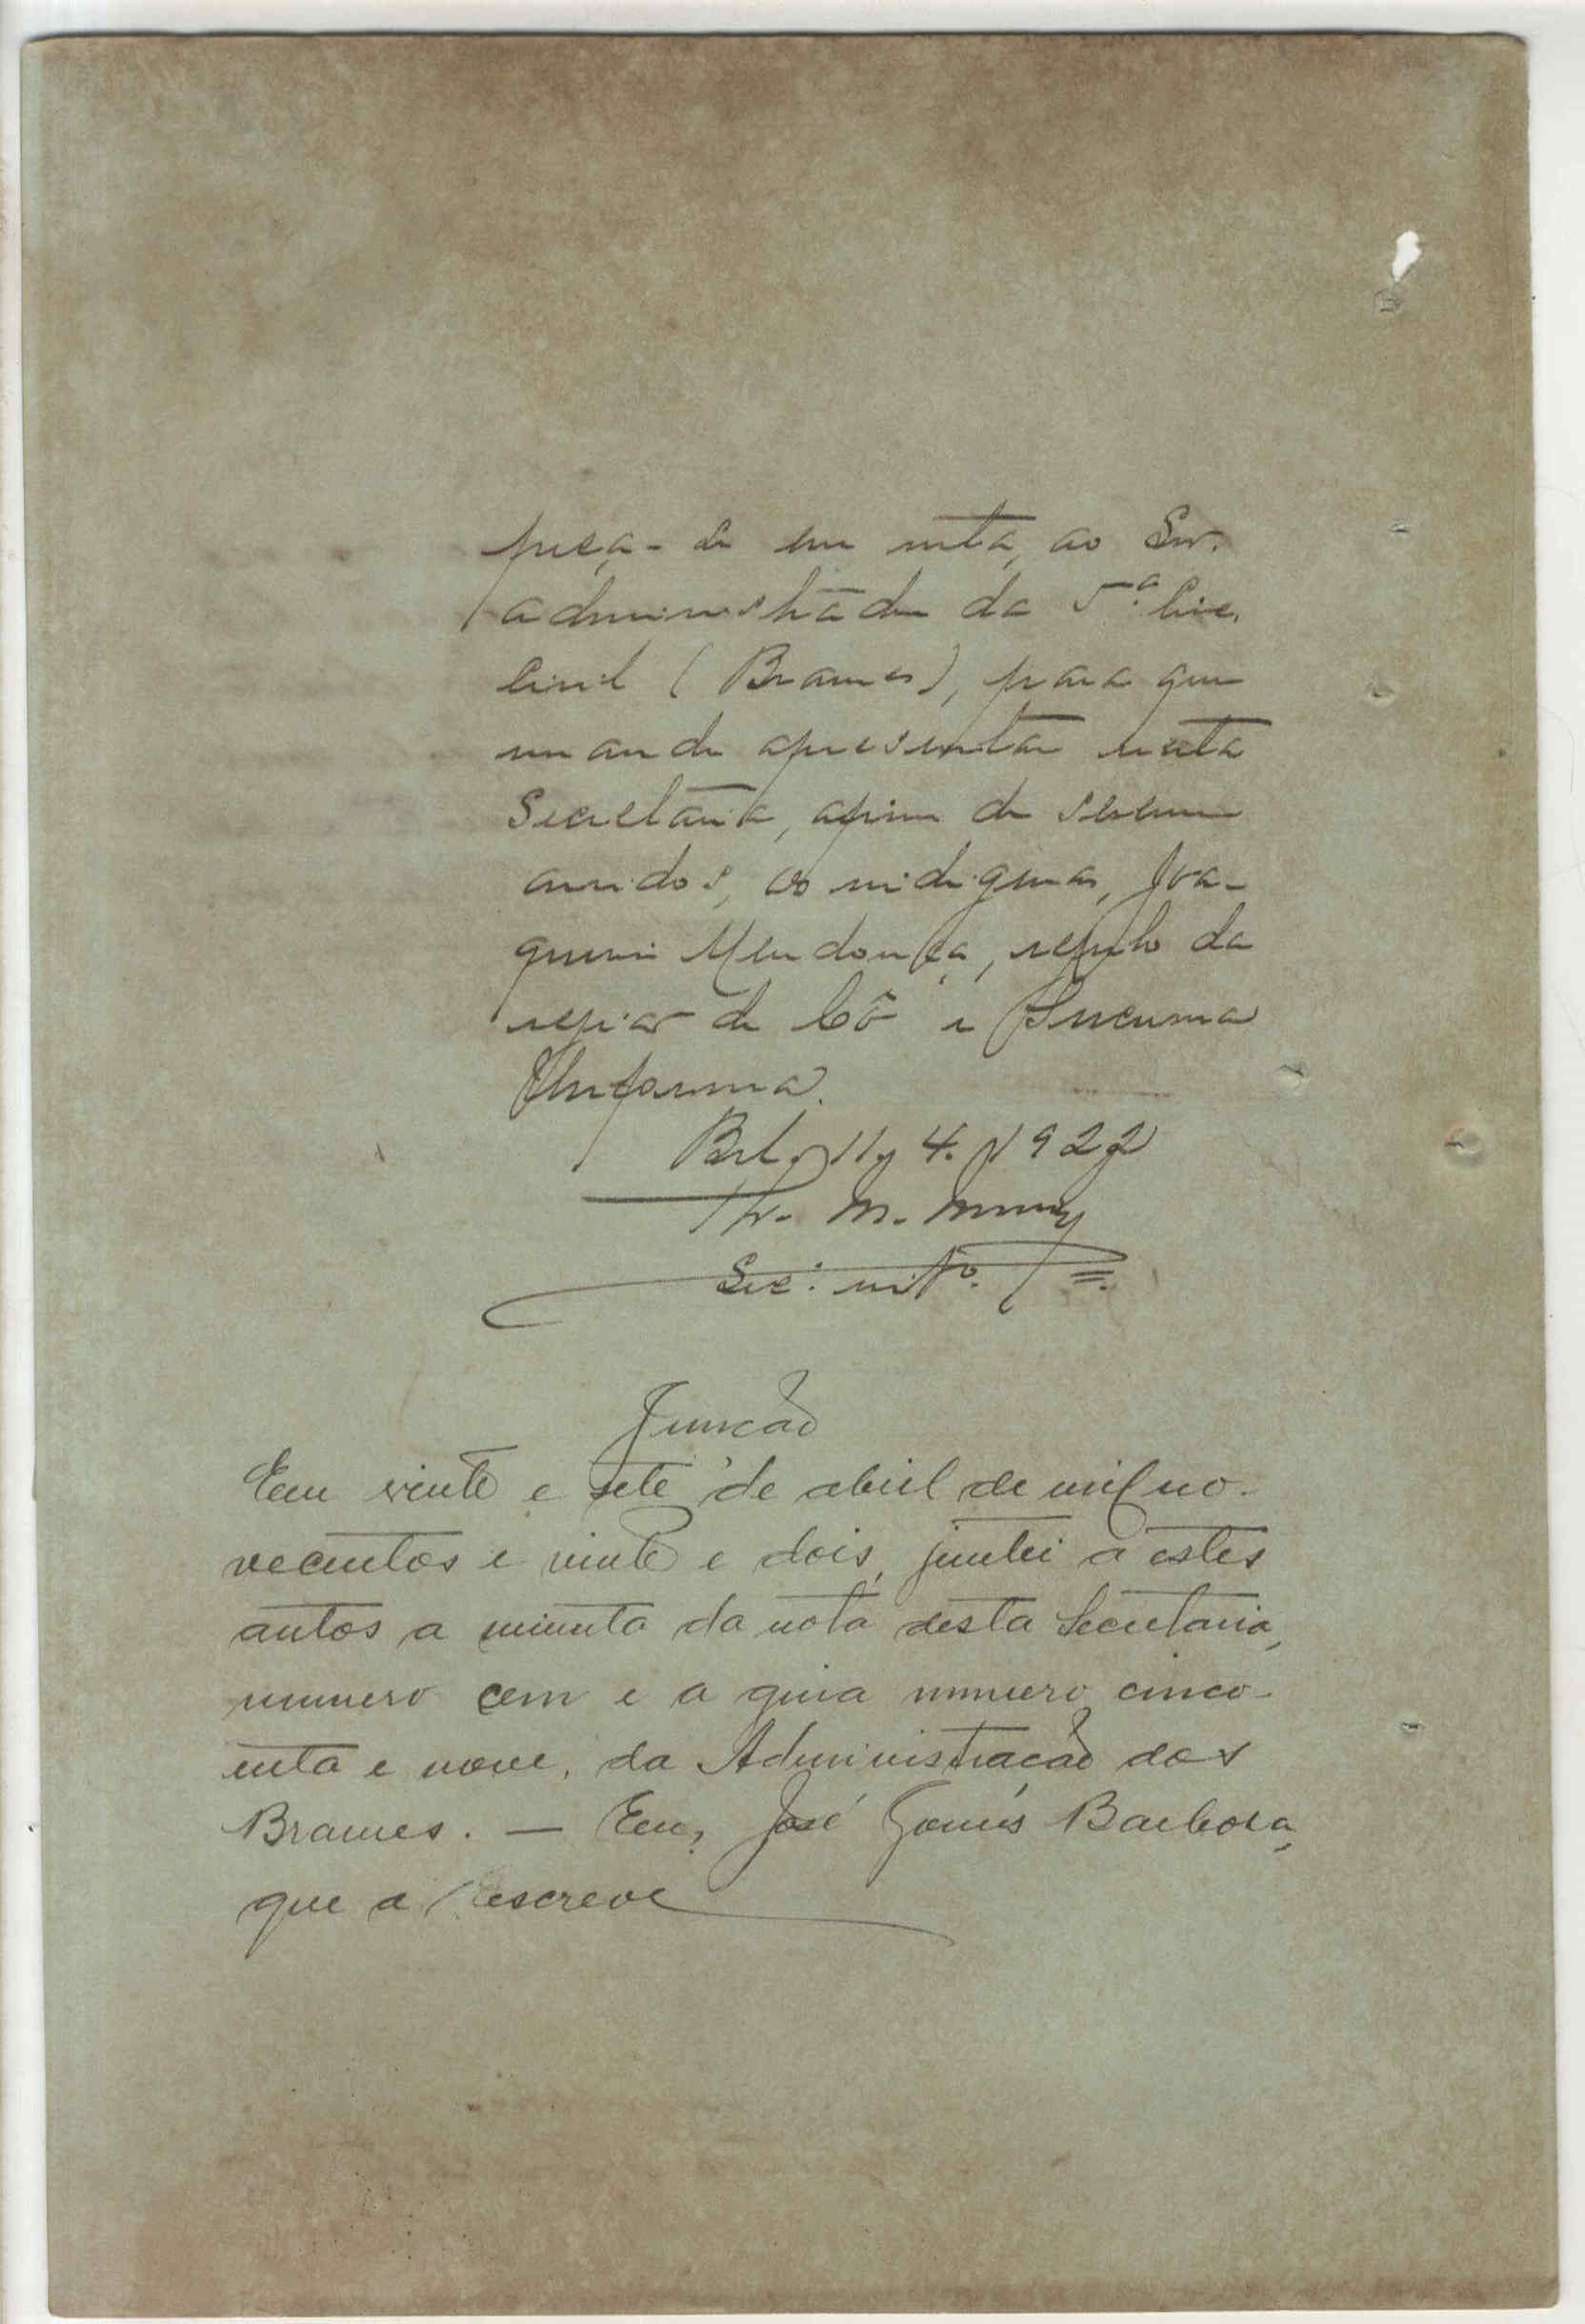 peça-se em nota, ao Snr.
administrador da 5.ª Circ.
Civil (Brames), para que
mande apresentar nesta
Secretaria, afim de serem
ouvidos, os indigenas, Joa-
quim Mendonça, regulo da
regiao de Cô e Incuma
Infamma.
11, 4. 1922
M.
Sec:
Juncão
Em vinte e sete de abril de mil no-
vecentos e vinte e dois, juntei a estes
autos a minuta da nota desta Secretaria,
numero cem e a guia numero cinco-
enta e nove, da Administracão dos
Brames. — Eeu, José Gomes Barbosa,
que a escreve